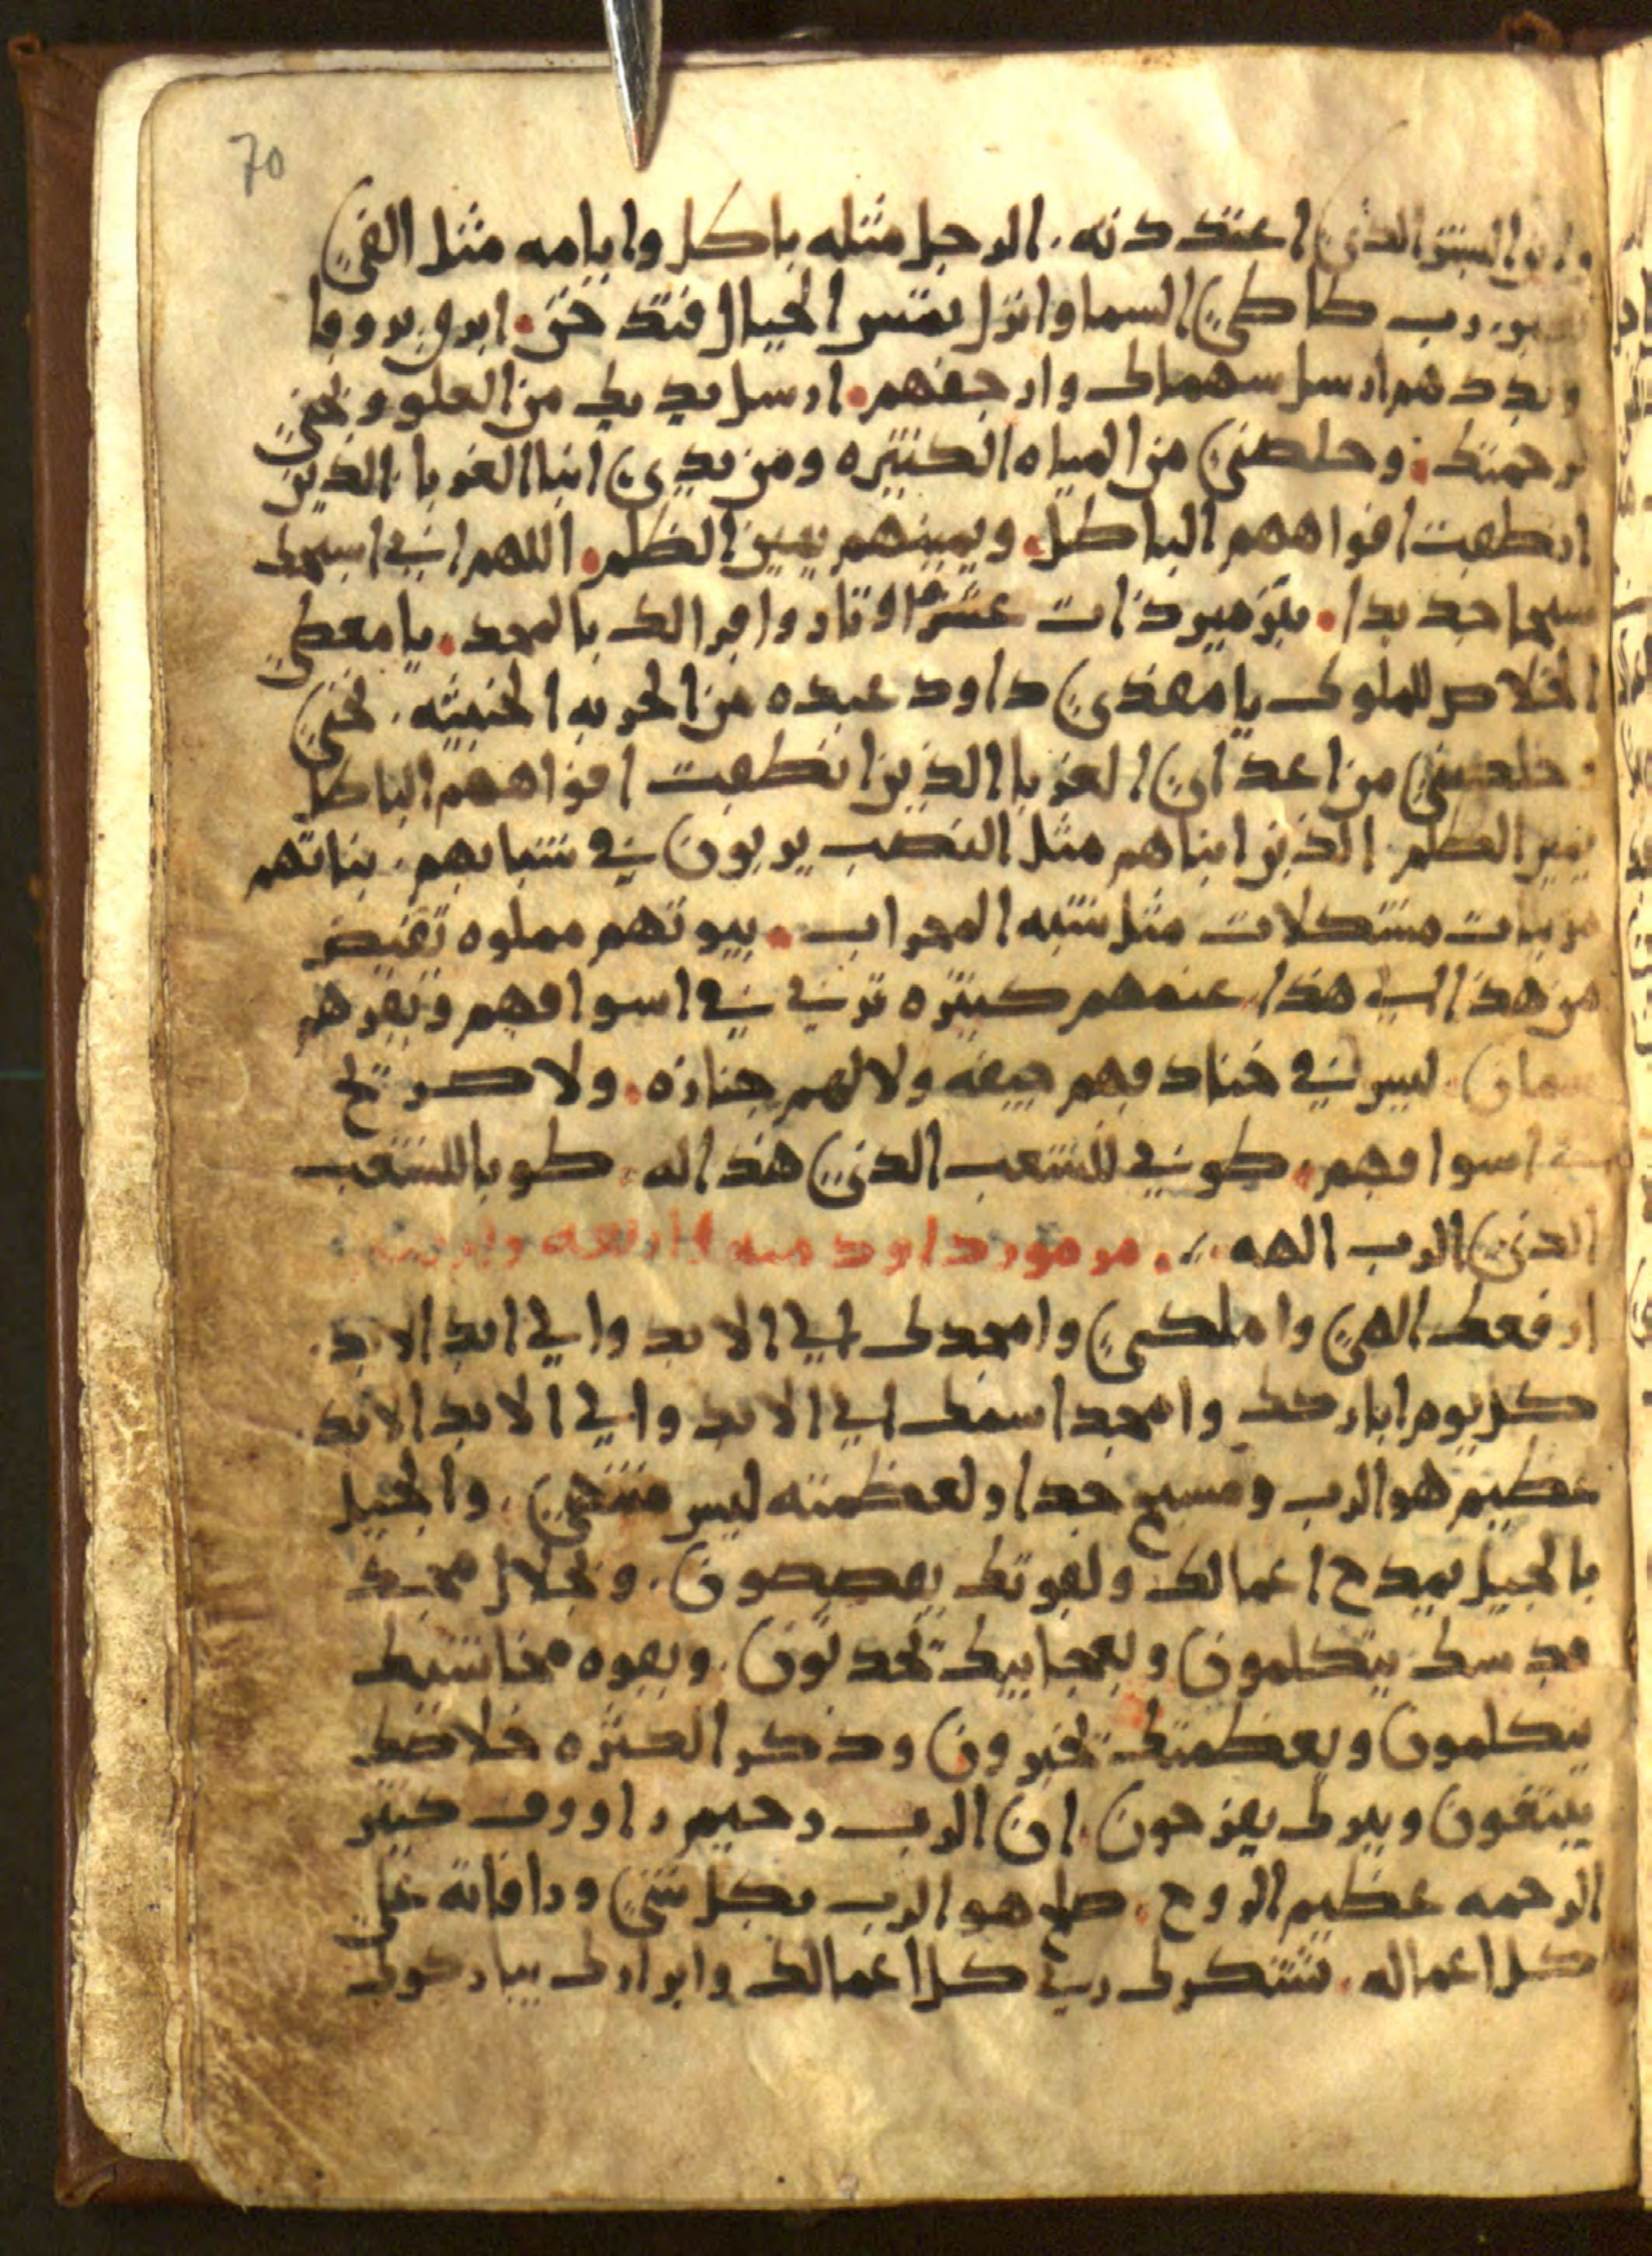 70
وابن البشر الذي اعتددته. الرجل مثله باطل وايامه مثل الفي
رب طاطي السما وانزل تمس الجبال فتدخن. ابرق بروقا
وبددهم ارسل سهامك وارجفهم. ارسل يديك من العلو ونجني
برحمتك. وخلصني من المياه الكثيره ومن يدي ابنا الغربا. الذين
انطقت افواههم الباطل. ويمينهم يمين الظلم. اللهم اني اسبحك
سبحا جديدا. بتزمير ذات عشره اوتار واقرا لك بالمجد. يا معطي
الخلاص للملوك يا منقذي داود عبده من الحربه الخبيثه. نجني
وخلصني من اعداي الغربا الذين انطقت افواههم الباطل
يمين الظلم. الذين ابناهم مثل النصب يربون في شبابهم. بناتهم
مزينات مشكلات مثل شبه المحراب. بيوتهم مملوه تفيض
من هذا الي هذا. غنمهم كثيره تربي في اسواقهم وبقرهم
سمان. ليس في خنادقهم جيفه ولا لهم جنازه. ولا صريخ
في اسواقهم. طوبي للشعب الذي هذا له. طوبا للشعب
الذي الرب الهه. مزمور داود ميه واربعه واربعين
ارفعك الهي واملكي وامجدك الي الابد والي ابد الابد.
كل يوم اباركك وامجد اسمك الي الابد والي الابد الابد.
عظيم هو الرب ومسبح جدا ولعظمته ليس منتهي. والجيل
بالجيل يمدح اعمالك ولقوتك يقصصون. وبجلال مجد
قدسك يتكلمون وبعجايبك تحدثون. وبقوه مخاشيك
يتكلمون وبعظمتك تخبرون وذكر الكثره خلاصك
يبتقون وببرك يفرحون. ان الرب رحيم راووف كثير
الرحمه عظيم الروح. صالح هو الرب بكل شي ورافاته علي
كل اعماله. تشكرك رب كل اعمالك وابرارك يباركوك